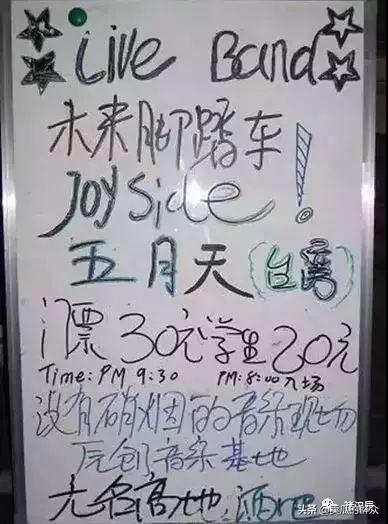 Live Band
未来脚踏车
JOYSide!
五月天(台湾)
门票30元学生20元
Time: PM 9:30 PM: 8:00入场
没有硝烟的音乐现场
原创音乐基地
无名高地 酒吧
头条